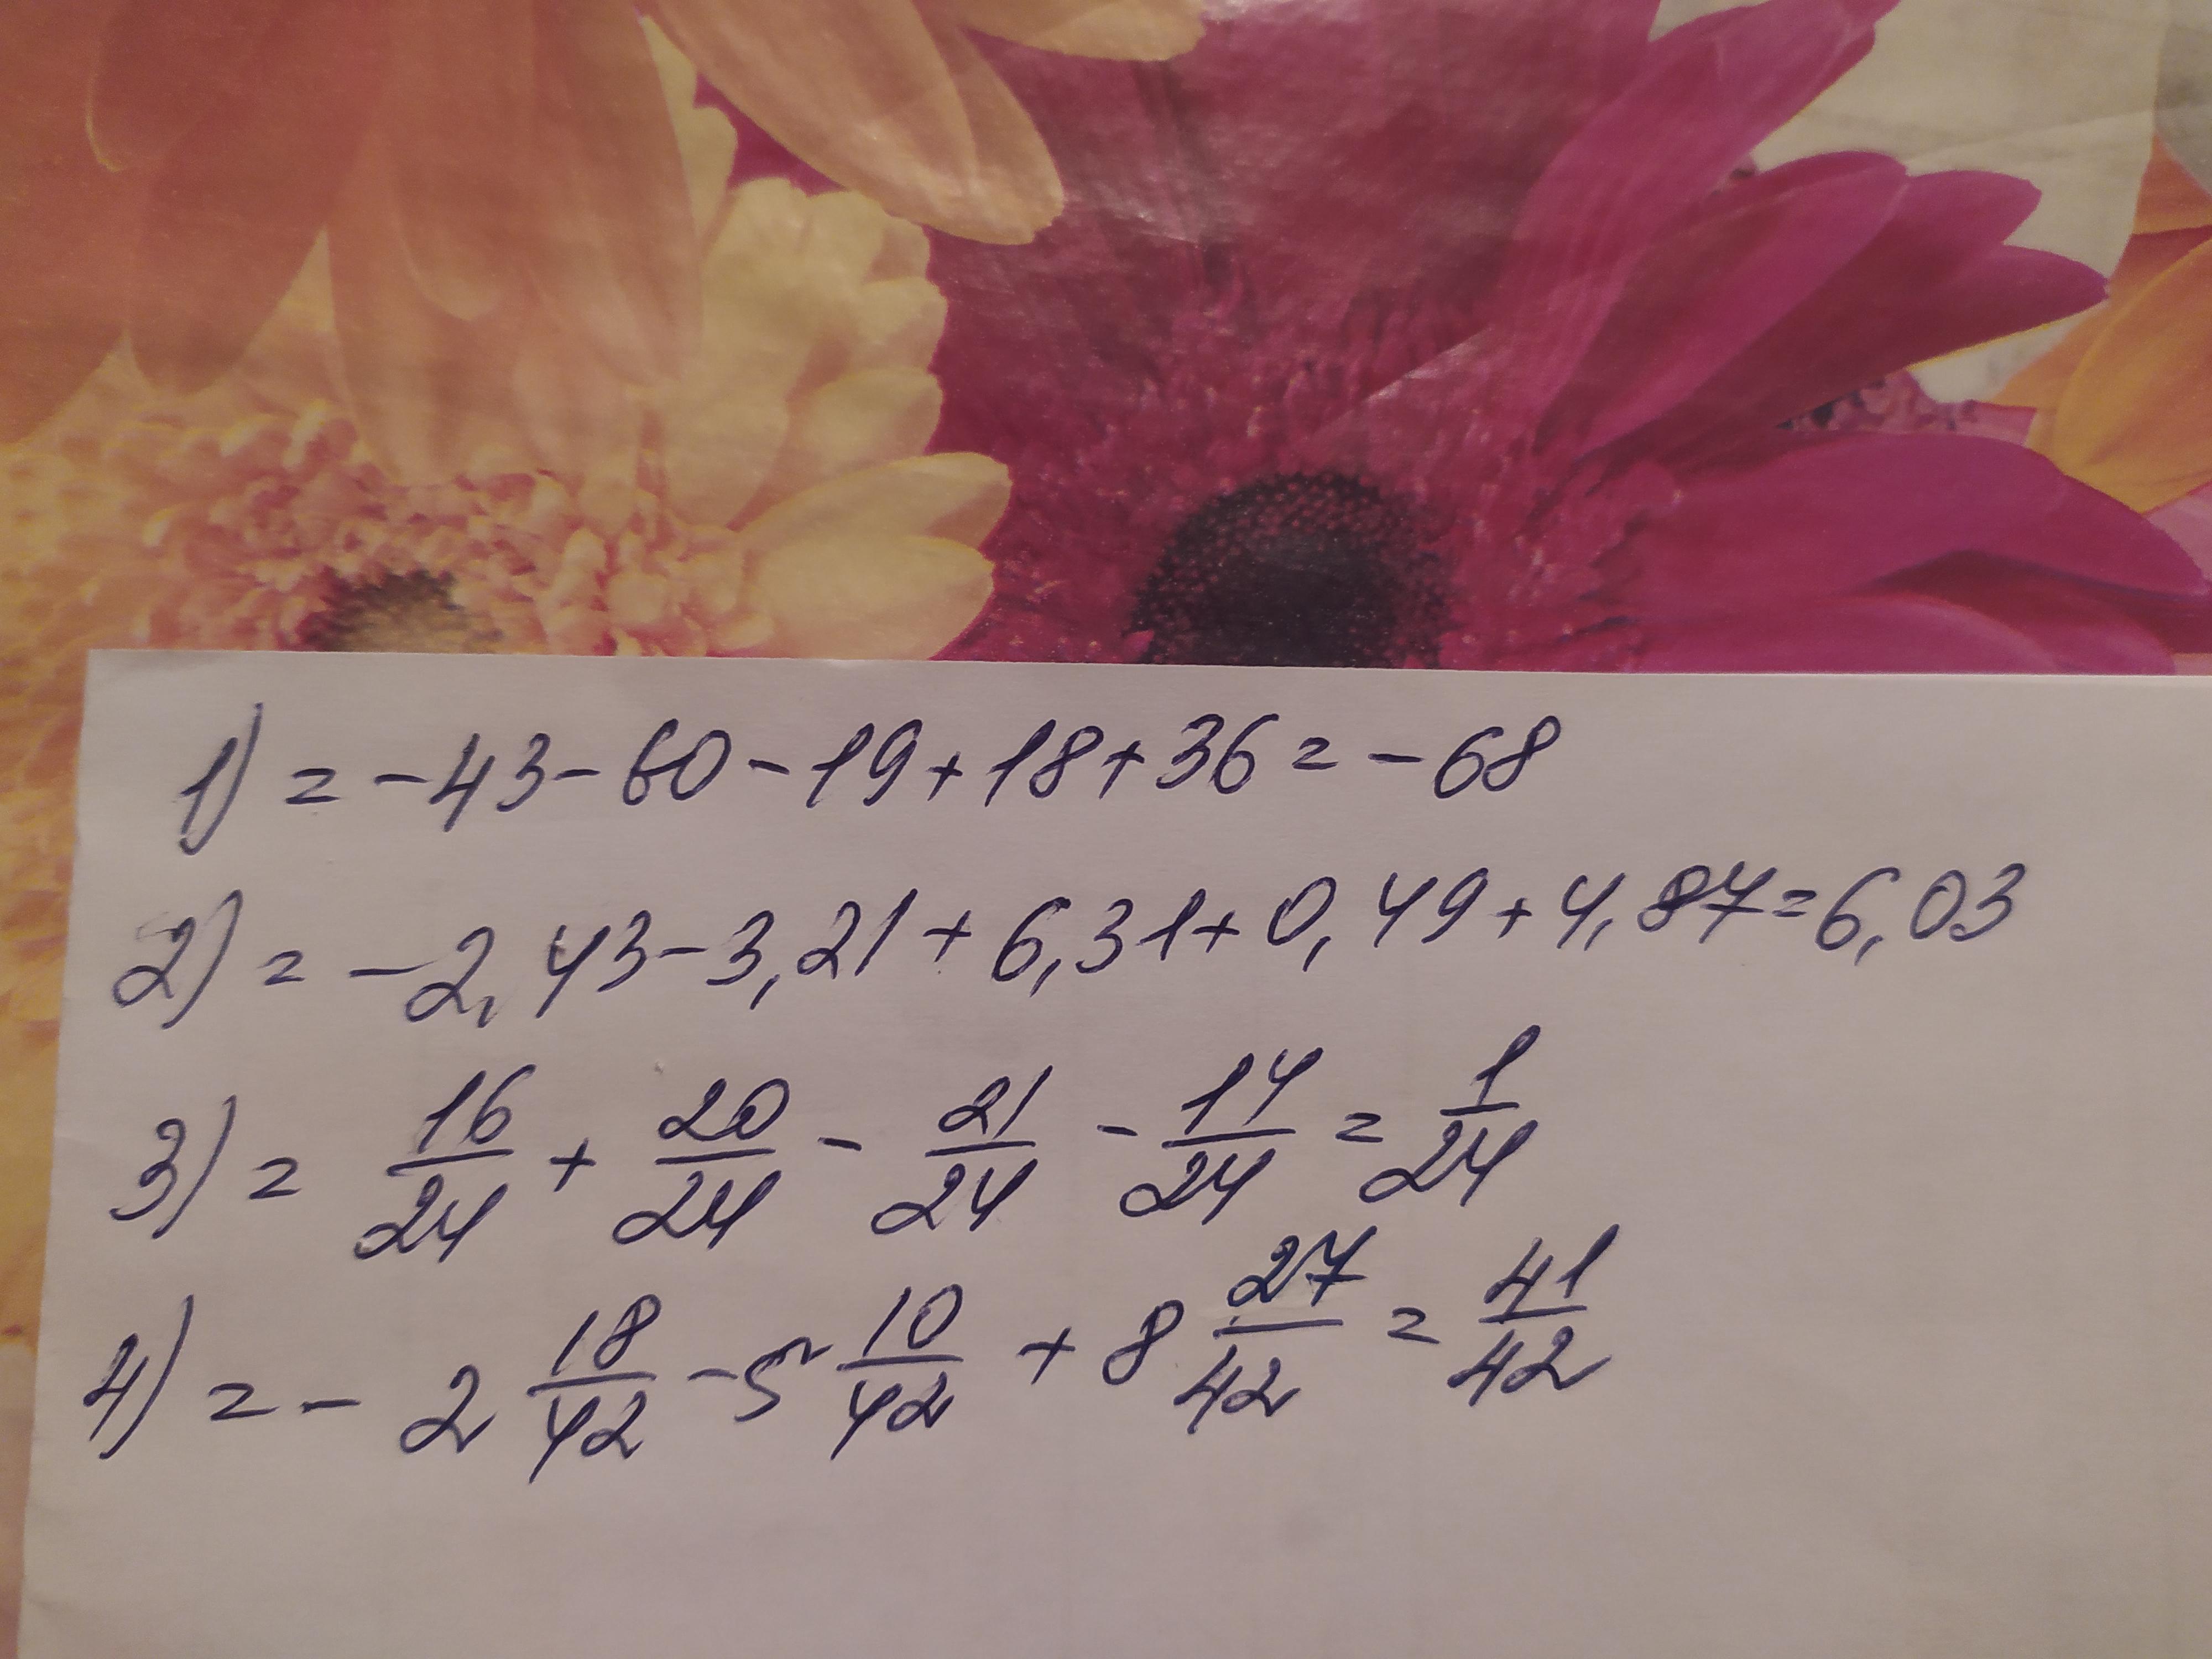 1) = -43-60-19+18+36=-68
2) = -2,43-3,21+6,31+0,49+4,87=6,03
3) = 16/24 + 20/24 - 21/24 - 14/24 = 1/24
4) = - 2 18/42 - 5 10/42 + 8 27/42 = 41/42